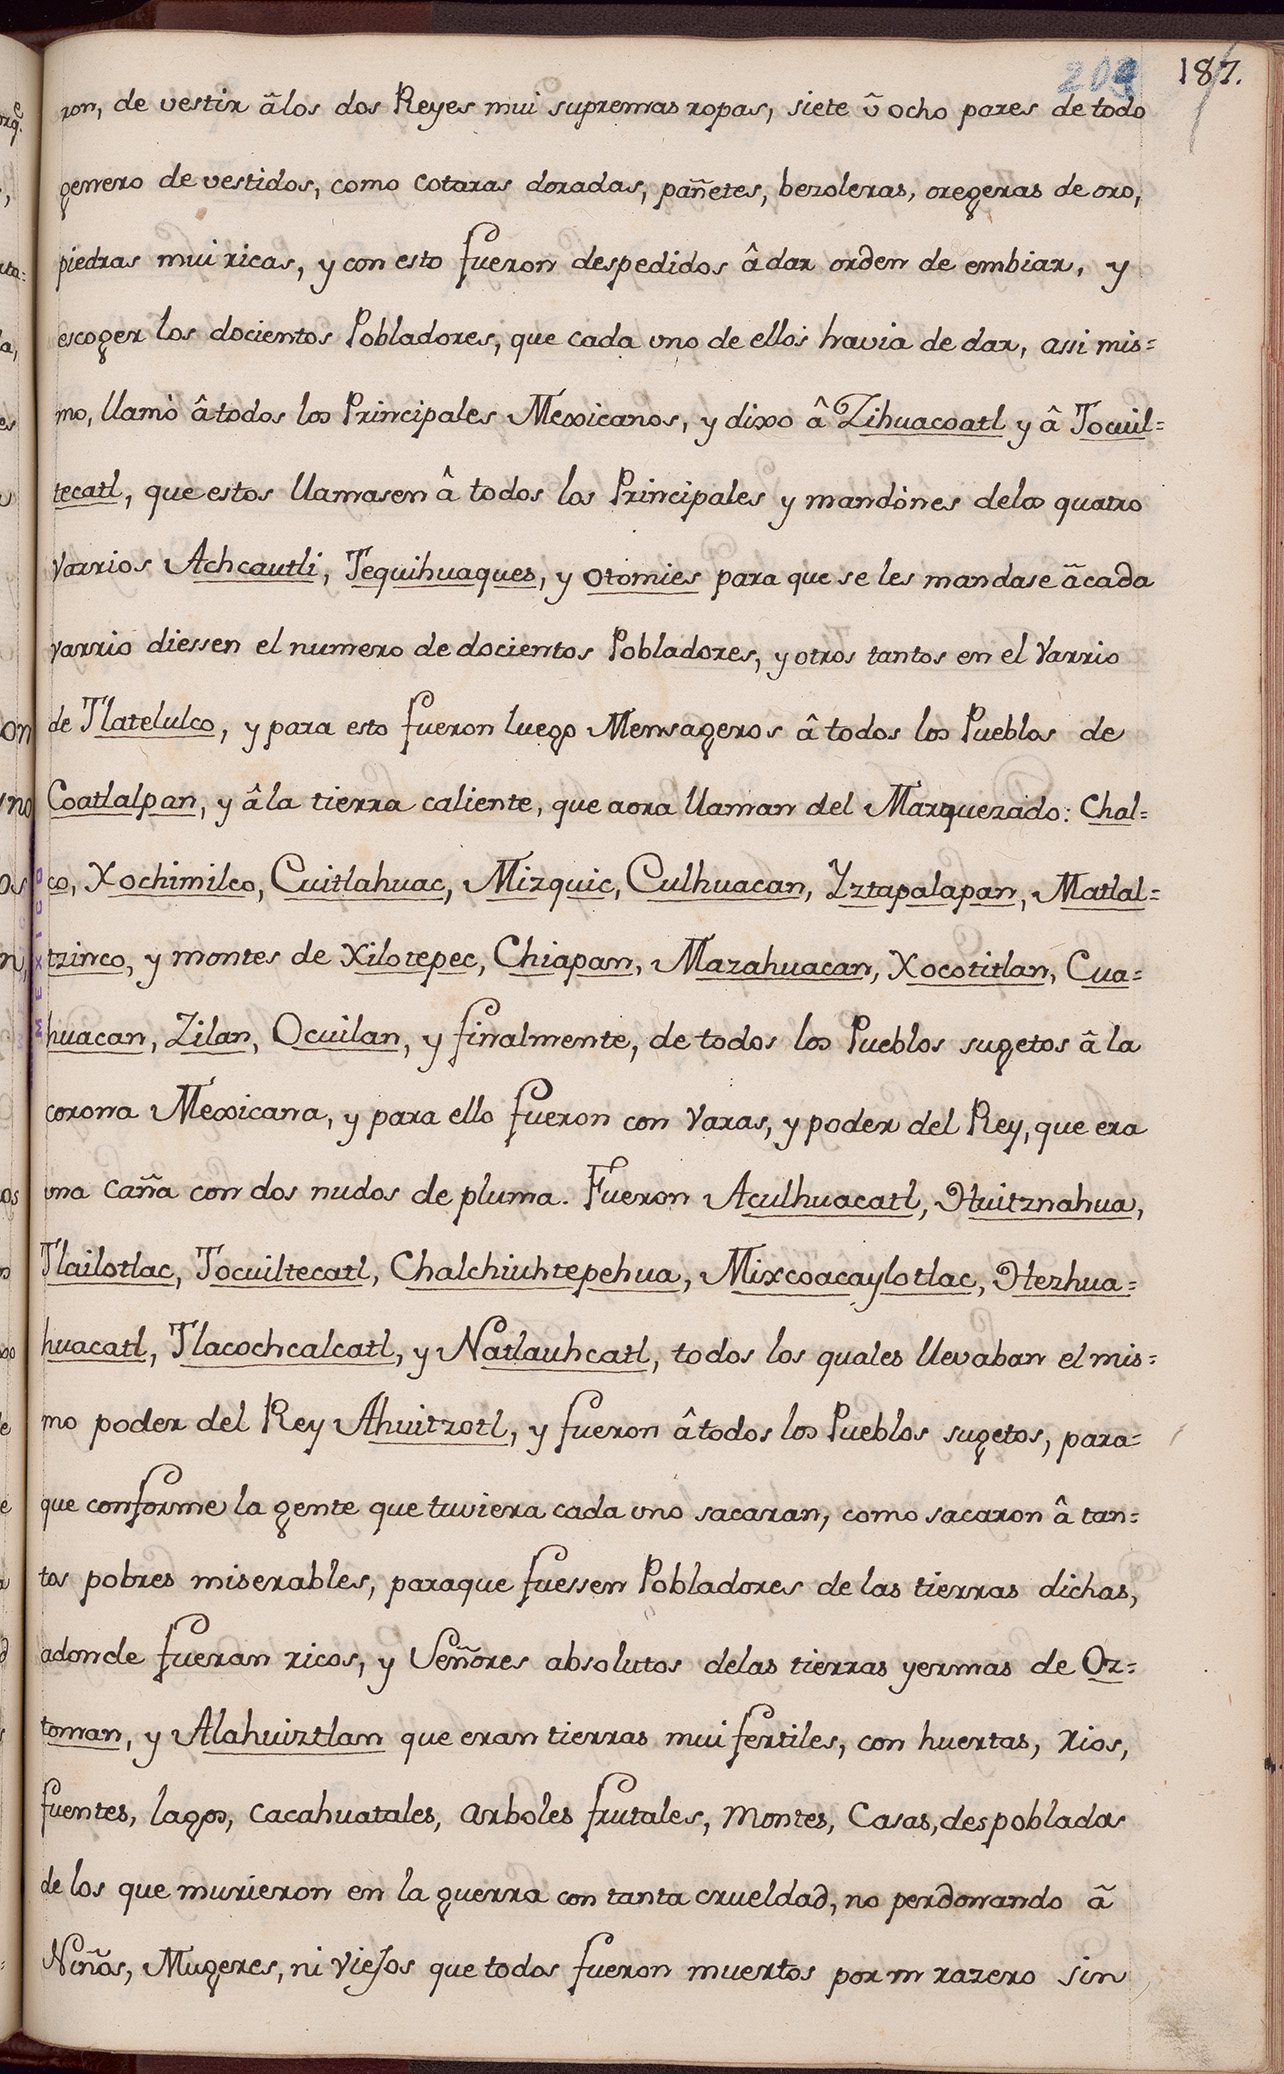 203 187.
ron, de vestir âlos dos Reyes mui supremas ropas, siete û ocho pares de todo
genero de vestidos, como cotaras doradas, pañetes, bezoleras, oregeras de oro,
piedras mui ricas, y con esto fueron despedidos â dar orden de embiar, y
escoger los docientos Pobladores, que cada uno de ellos havia de dar, assi mis=
mo, llamò â todos los Principales Mexicanos, y dixo â Zihuacoatl y â Tocuil=
tecatl, que estos llamasen â todos los Principales y mandònes delos quatro
Varrios Achcautli, Tequihuaques, y Otomies para que se les mandase âcada
varrio diessen el numero de docientos Pobladores, y otros tantos en el Varrio
de Tlatelulco, y para esto fueron luego Mensageros â todos los Pueblos de
Coatlalpan, y â la tierra caliente, que aora llaman del Marquezado: Chal=
co, Xochimilco, Cuitlahuac, Mizquic, Culhuacan, Yztapalapan, Matlal=
tzinco, y montes de Xilotepec, Chiapan, Mazahuacan, Xocotitlan, Cua=
huacan, Zilan, Ocuilan, y finalmente, de todos los Pueblos sugetos â la
corona Mexicana, y para ello fueron con Varas, y poder del Rey, que era
una caña con dos nudos de pluma. Fueron Aculhuacatl, Huitznahua,
Tlailotlac, Tocuiltecatl, Chalchiuhtepehua, Mixcoacaylotlac, Hezhua=
huacatl, Tlacochcalcatl, y Natlauhcatl, todos los quales llevaban el mis=
mo poder del Rey Ahuitzotl, y fueron â todos los Pueblos sugetos, para=
que conforme la gente que tuviera cada uno sacaran, como sacaron â tan=
tos pobres miserables, paraque fuessen Pobladores de las tierras dichas,
adonde fueran ricos, y Señores absolutos delas tierras yermas de Oz=
toman, y Alahuiztlan que eran tierras mui fertiles, con huertas, rios,
fuentes, lagos, cacahuatales, arboles frutales, montes, Casas, despobladas
de los que murieron en la guerra con tanta crueldad, no perdonando â
Niños, Mugeres, ni Viejos que todos fueron muertos por un razero sin
MEXICO